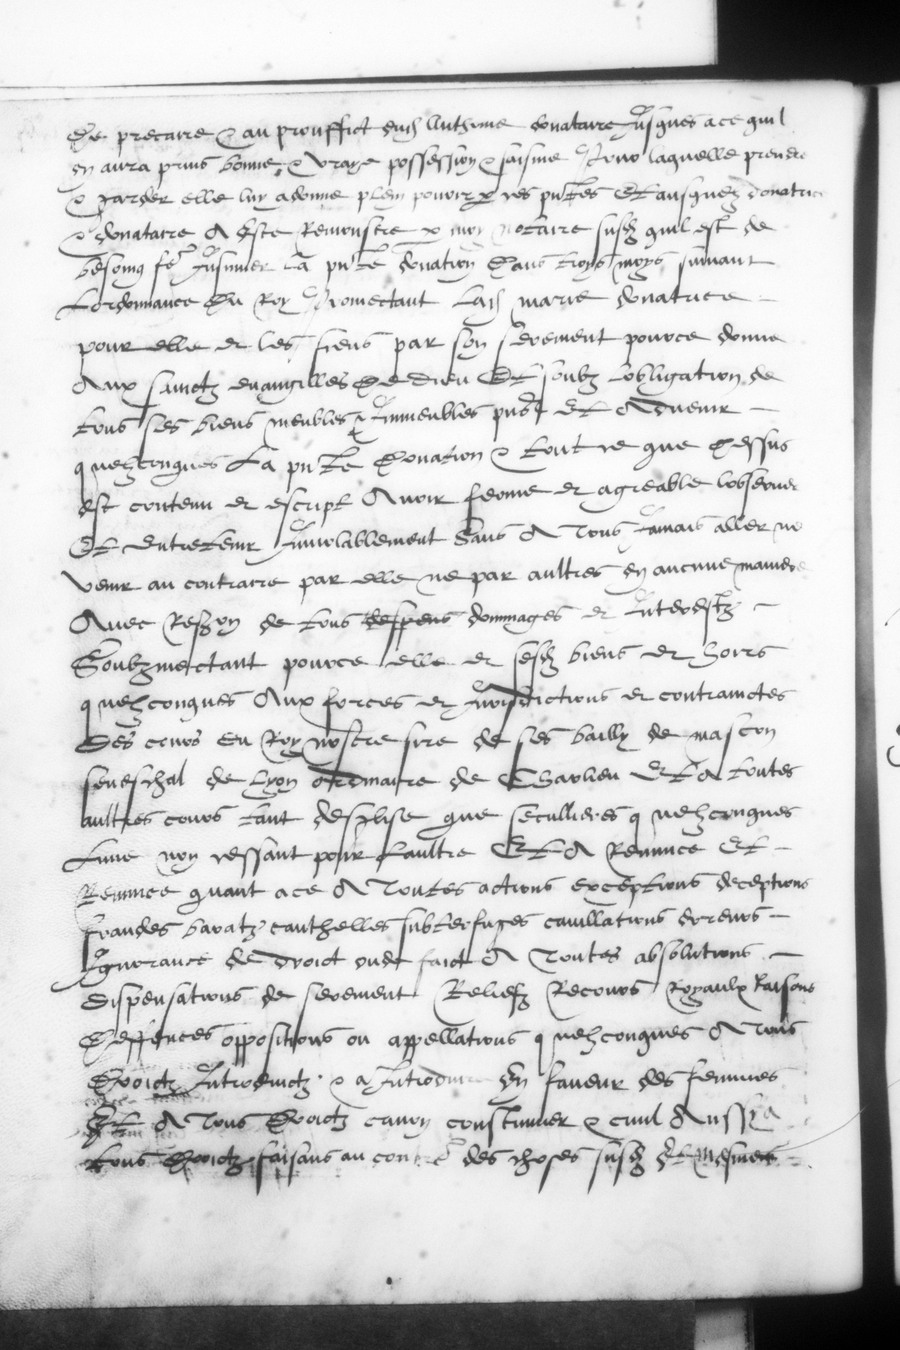 De precaire & au prouffict dud Anthoine donataire Jusques a ce quil
en aura prins bonne & vraye possession & saisine Pour laquelle prendre
& garder elle luy a donne plein pouvoir p ces pntes Et ausquelz donatrice
& donataire A este Remonstre p moy notaire susd quil est de
besoing fe Jnsinuer La pnte donation dans troys moys suivant
Lordonnance du Roy Promectant Lad marie donatrice
pour elle et les siens par son serement pource donne
Aux sainctz evangilles de dieu Et soubz lobligation de
tous ses biens meubles & Jmmeubles pns Et Advenir
quelzconques La pnte Donation & tout ce que dessus
est contenu et escript Avoir ferme et agreable lobserver
Et entretenir Jnviolablement Sans A Tous Jamais aller ne
venir au contraire par elle ne par aultres en aucune maniere
Avec Reffon de tous despens dommages et Jnterestz
Soubzmectant pource elle et sesd biens et hoirs
quelzconques Aux forces et Jurisdictions et contrainctes
Des cours du Roy nostre sire de ses bailly de mascon
seneschal de Lyon ordinaire de Charlieu Et A toutes
aultres cours tant desglise que secullieres quelzconques
Lune non cessant pour laultre Et A Renunce Et
Renunce quant a ce A Toutes actions exceptions deceptions
fraudes baratz cauthelles subterfuges cavillations erreurs
Jgnorance de droict ou de faict A Toutes absolutions
Dispensations de serement Reliefz Recours Royaulx Raisons
Deffences oppositions ou appellations quelzconques A Tous
Droictz Jntroductz & a Jntroduire En faveur des femmes
Et A Tous Droictz canon coustumier & civil Aussy a
tous Droictz faisans au contre des choses susd Et mesmes